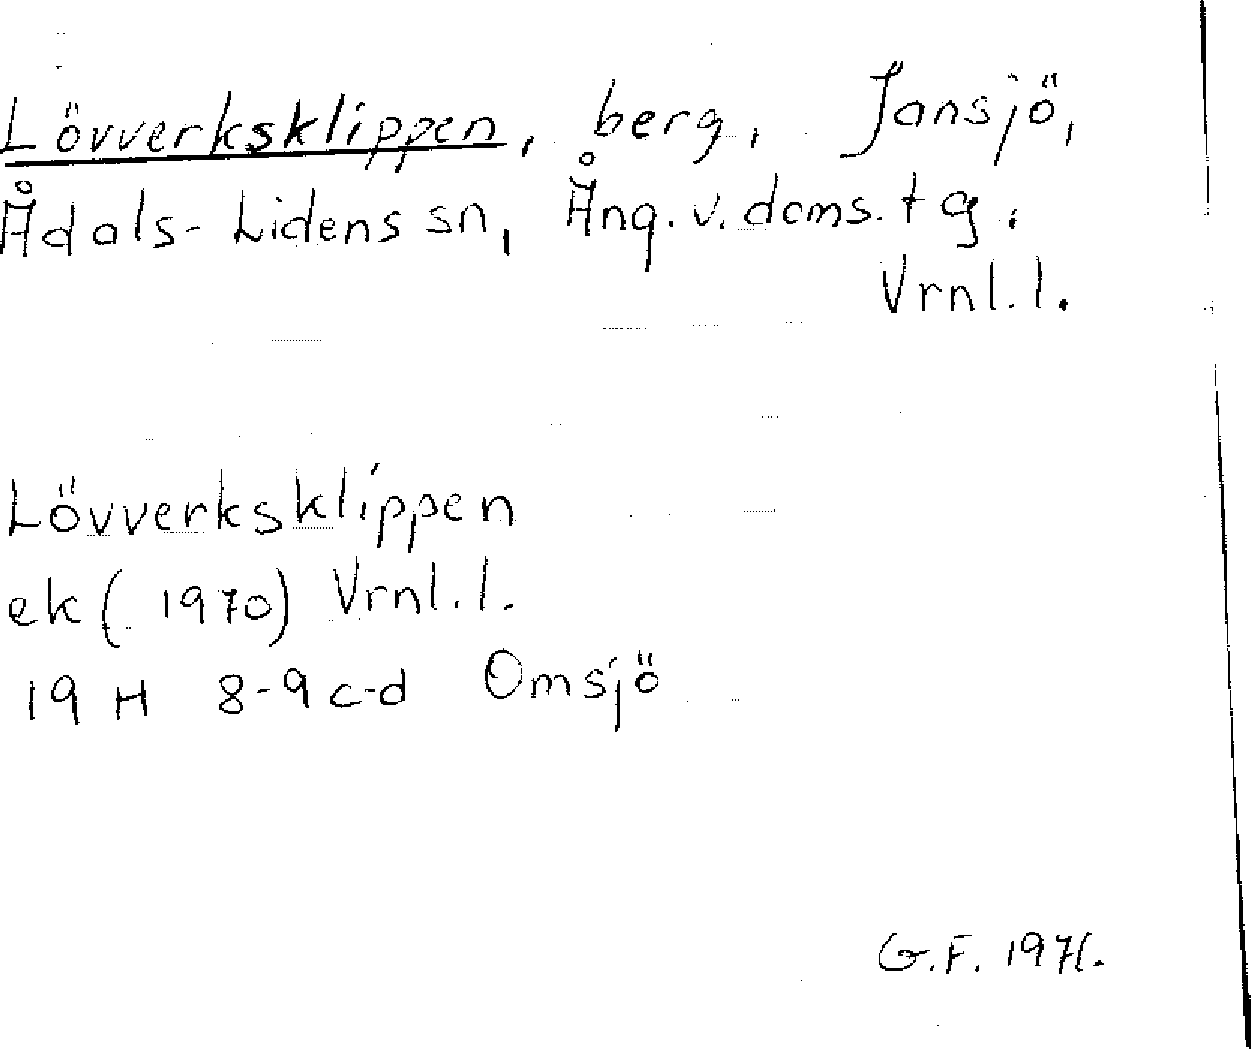 Lövverksklippen, berg, Jansjö,
Ådals-Lidens sn, Ång. v. doms. tg.
Vrnl. l.
Lövverksklippen
ek (1970) Vrnl. l.
19 H 8-9 c-d Omsjö
G.F. 1971.